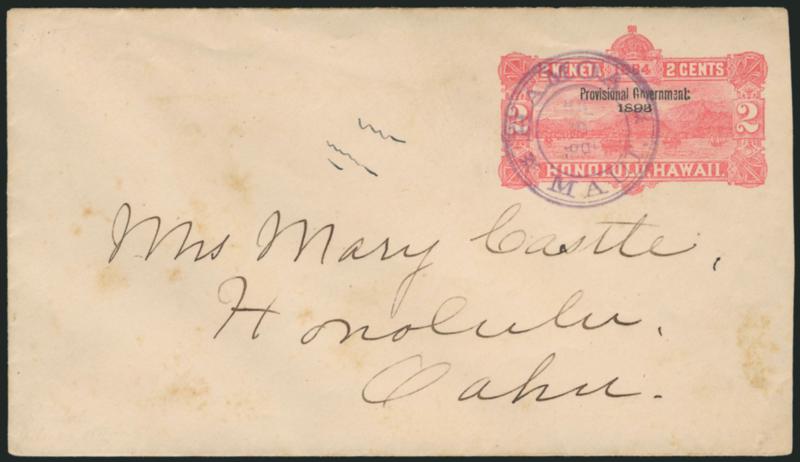 2 KENETA 1884 2 CENTS
Provisional Government
1893
2 2
HONOLULU, HAWAII.
MAUI
Mrs Mary Castle,
Honolulu.
Oahu.